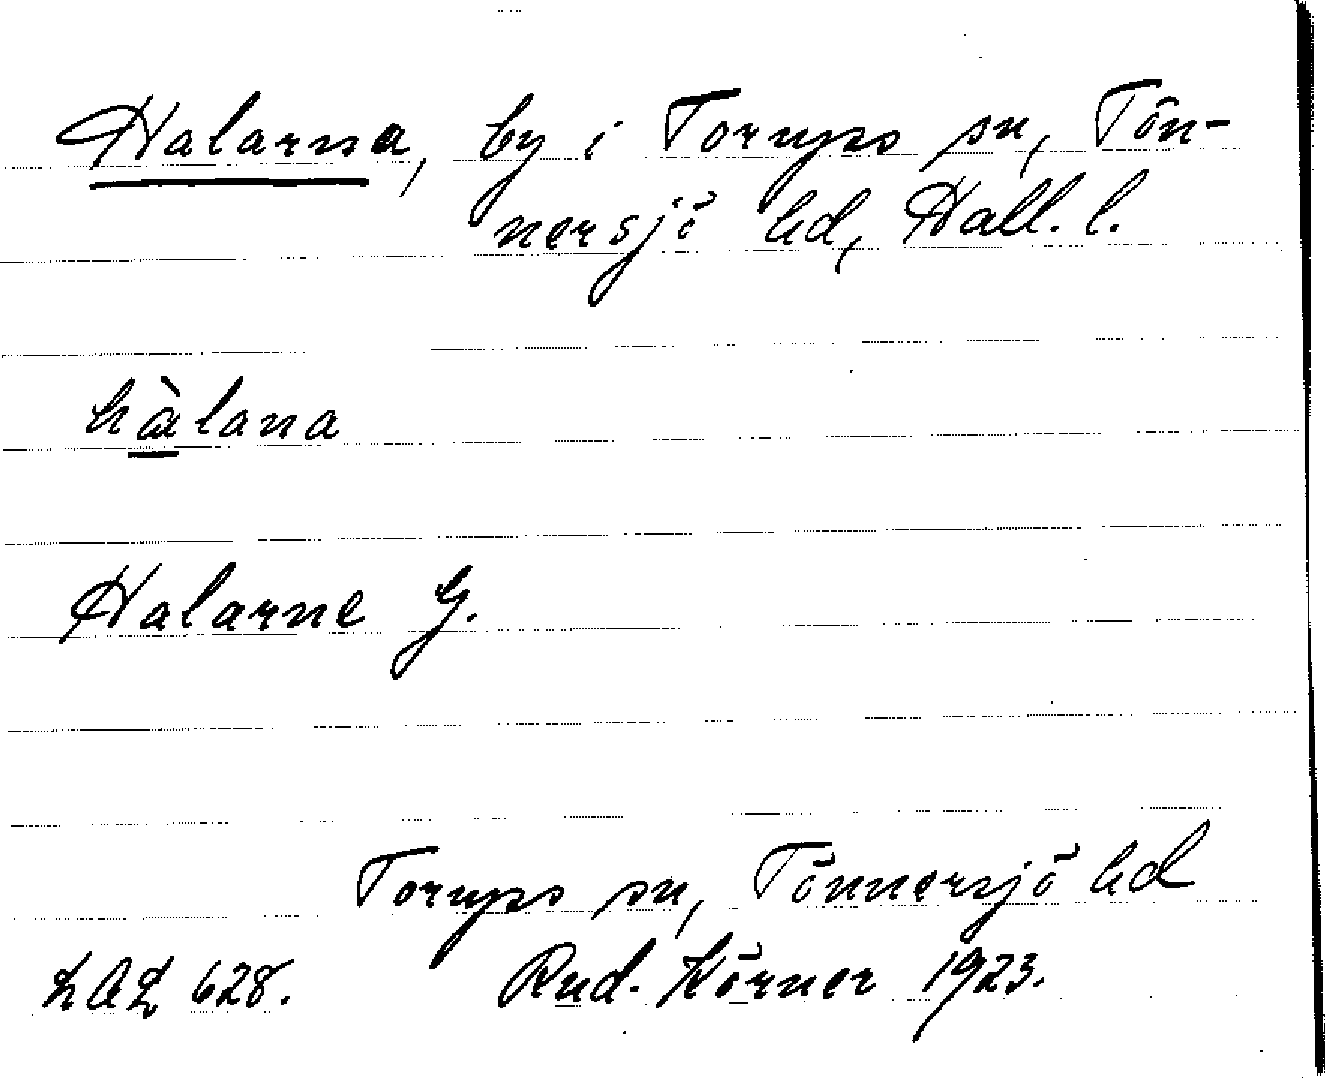 Halarna, by i Torups sn, Tön-
nersjö hd, Hall. l.
hàlana
Halarne G.
Torups sn, Tönnersjö hd
LAL 628. Rud. Körner 1923.